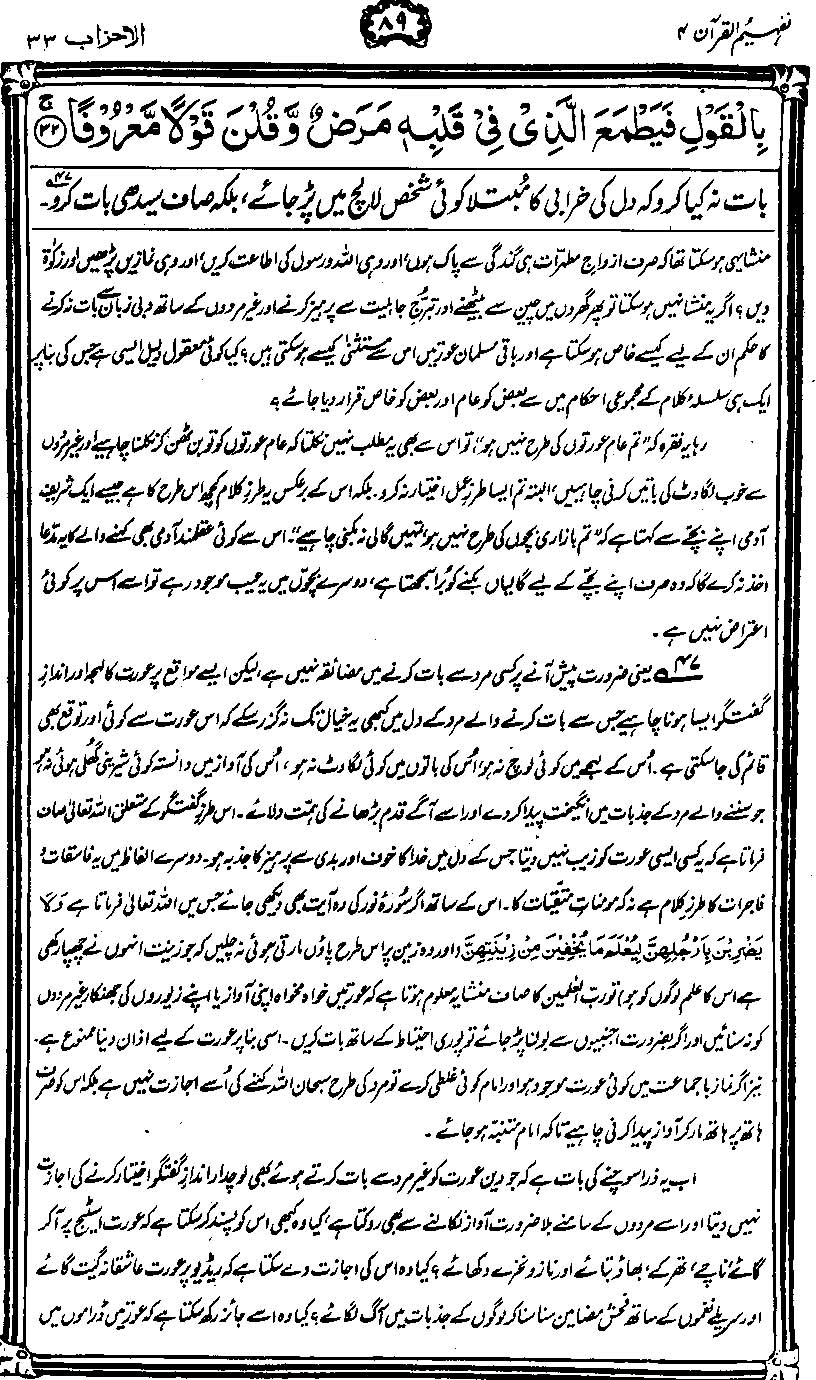 تفہیم القرآن ۴
۸۹
الاحزاب ۳۳
بِالْقَوْلِ فَيَطْمَعَ الَّذِيْ فِيْ قَلْبِهٖ مَرَضٌ وَّقُلْنَ قَوْلًا مَّعْرُوْفًا ﴿۳۲﴾
بات نہ کیا کرو کہ دل کی خرابی کا مُبتلا کوئی شخص لالچ میں پڑ جائے، بلکہ صاف سیدھی بات کرو۔۴۷
منشا یہی ہو سکتا تھا کہ صرف ازواجِ مطہرات ہی گندگی سے پاک ہوں، اور وہی اللہ و رسول کی اطاعت کریں، اور وہی نمازیں پڑھیں اور زکوٰۃ
دیں؟ اگر یہ منشا نہیں ہو سکتا تو پھر گھروں میں چین سے بیٹھنے اور تبرّجِ جاہلیت سے پرہیز کرنے اور غیر مردوں کے ساتھ دبی زبان سے بات نہ کرنے
کا حکم ان کے لیے کیسے خاص ہو سکتا ہے اور باقی مسلمان عورتیں اس سے مستثنیٰ کیسے ہو سکتی ہیں؟ کیا کوئی معقول دلیل ایسی ہے جس کی بنا پر
ایک ہی سلسلۂ کلام کے مجموعی احکام میں سے بعض کو عام اور بعض کو خاص قرار دیا جائے؟
رہا یہ فقرہ کہ ”تم عام عورتوں کی طرح نہیں ہو“، تو اس سے بھی یہ مطلب نہیں نکلتا کہ عام عورتوں کو تو بن ٹھن کر نکلنا چاہیے اور غیر مردوں
سے خوب لگاوٹ کی باتیں کرنی چاہییں، البتہ تم ایسا طرزِ عمل اختیار نہ کرو۔ بلکہ اس کے برعکس یہ طرزِ کلام کچھ اس طرح کا ہے جیسے ایک شریف
آدمی اپنے بچّے سے کہتا ہے کہ ”تم بازاری بچوں کی طرح نہیں ہو، تمہیں گالی نہ بکنی چاہیے“۔ اس سے کوئی عقلمند آدمی بھی کہنے والے کا یہ مدّعا
اخذ نہ کرے گا کہ وہ صرف اپنے بچّے کے لیے گالیاں بکنے کو بُرا سمجھتا ہے، دوسرے بچّوں میں یہ عیب موجود رہے تو اسے اس پر کوئی
اعتراض نہیں ہے۔
۴۷ یعنی ضرورت پیش آنے پر کسی مرد سے بات کرنے میں مضائقہ نہیں ہے لیکن ایسے مواقع پر عورت کا لہجہ اور اندازِ
گفتگو ایسا ہونا چاہیے جس سے بات کرنے والے مرد کے دل میں کبھی یہ خیال تک نہ گزر سکے کہ اس عورت سے کوئی اور توقع بھی
قائم کی جا سکتی ہے۔ اُس کے لہجے میں کوئی لوچ نہ ہو، اُس کی باتوں میں کوئی لگاوٹ نہ ہو، اُس کی آواز میں دانستہ کوئی شیرینی گھلی ہوئی نہ ہو
جو سننے والے مرد کے جذبات میں انگیخت پیدا کر دے اور اسے آگے قدم بڑھانے کی ہمت دلائے۔ اس طرزِ گفتگو کے متعلق اللہ تعالیٰ صاف
فرماتا ہے کہ یہ کسی ایسی عورت کو زیب نہیں دیتا جس کے دل میں خدا کا خوف اور بدی سے پرہیز کا جذبہ ہو۔ دوسرے الفاظ میں یہ فاسقات و
فاجرات کا طرزِ کلام ہے نہ کہ مومناتِ متقیات کا۔ اس کے ساتھ اگر سورۂ نور کی وہ آیت بھی دیکھی جائے جس میں اللہ تعالیٰ فرماتا ہے وَلَا
يَضْرِبْنَ بِاَرْجُلِهِنَّ لِيُعْلَمَ مَا يُخْفِيْنَ مِنْ زِيْنَتِهِنَّ (اور وہ زمین پر اس طرح پاؤں مارتی ہوئی نہ چلیں کہ جو زینت انہوں نے چھپا رکھی
ہے اس کا علم لوگوں کو ہو) تو ربّ العٰلمین کا صاف منشا یہ معلوم ہوتا ہے کہ عورتیں خواہ مخواہ اپنی آواز یا اپنے زیوروں کی جھنکار غیر مردوں
کو نہ سنائیں اور اگر بضرورت اجنبیوں سے بولنا پڑ جائے تو پوری احتیاط کے ساتھ بات کریں۔ اسی بنا پر عورت کے لیے اذان دینا ممنوع ہے۔
نیز اگر نماز باجماعت میں کوئی عورت موجود ہو اور امام کوئی غلطی کرے تو مرد کی طرح سبحان اللہ کہنے کی اُسے اجازت نہیں ہے بلکہ اس کو صرف
ہاتھ پر ہاتھ مار کر آواز پیدا کرنی چاہیے تاکہ امام متنبہ ہو جائے۔
اب یہ ذرا سوچنے کی بات ہے کہ جو دین عورت کو غیر مرد سے بات کرتے ہوئے بھی لوچدار اندازِ گفتگو اختیار کرنے کی اجازت
نہیں دیتا اور اسے مردوں کے سامنے بلا ضرورت آواز نکالنے سے بھی روکتا ہے، کیا وہ کبھی اس کو پسند کر سکتا ہے کہ عورت اسٹیج پر آکر
گائے، ناچے، تھرکے، بھاؤ بتائے اور ناز و نخرے دکھائے؟ کیا وہ اس کی اجازت دے سکتا ہے کہ ریڈیو پر عورت عاشقانہ گیت گائے
اور سریلے نغموں کے ساتھ فحش مضامین سنا سنا کر لوگوں کے جذبات میں آگ لگائے؟ کیا وہ اسے جائز رکھ سکتا ہے کہ عورتیں ڈراموں میں